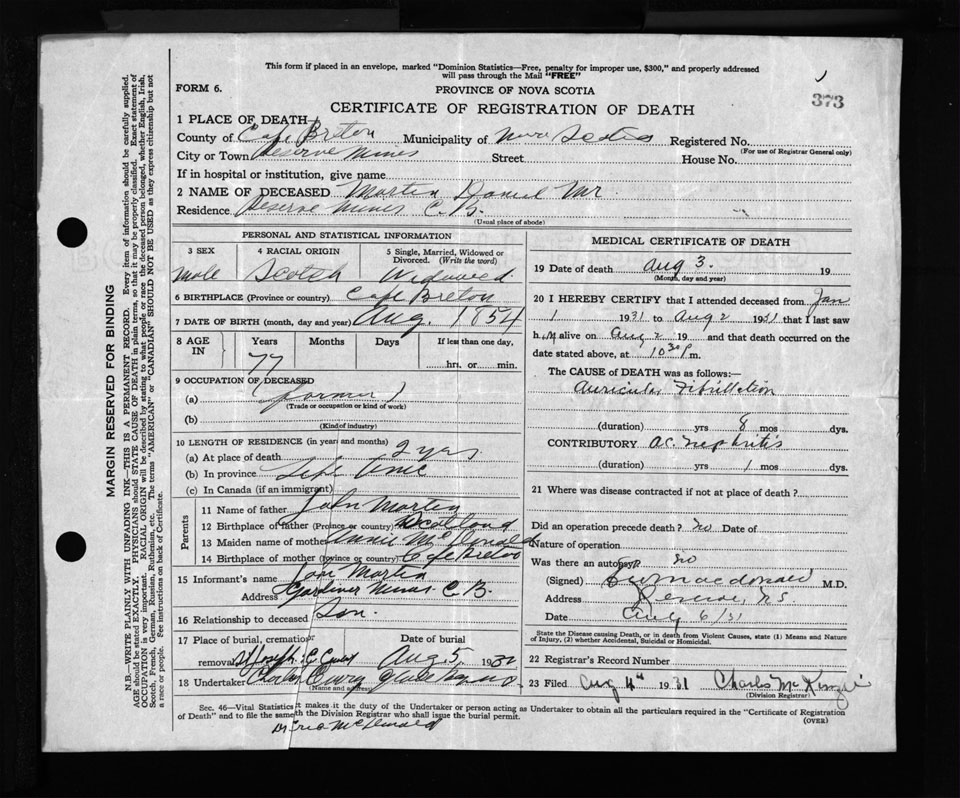 This form if placed in an envelope, marked "Dominion Statistics—Free, penalty for improper use, $300," and properly addressed
will pass through the Mail "FREE"
FORM 6.
PROVINCE OF NOVA SCOTIA
373
CERTIFICATE OF REGISTRATION OF DEATH
1 PLACE OF DEATH
County of Cape Breton Municipality of Nova Scotia Registered No.
(For use of Registrar General only)
City or Town Reserve Mines Street House No.
If in hospital or institution, give name
2 NAME OF DECEASED Martin Daniel Mr.
Residence Reserve Mines C.B.
(Usual place of abode)
PERSONAL AND STATISTICAL INFORMATION
3 SEX 4 RACIAL ORIGIN 5 Single, Married, Widowed or Divorced. (Write the word)
Male Scotch Widowed
6 BIRTHPLACE (Province or country) Cape Breton
7 DATE OF BIRTH (month, day and year) Aug. 1854
8 AGE IN Years Months Days If less than one day,
77 hrs. or min.
9 OCCUPATION OF DECEASED
(a) (farmer)
(Trade or occupation or kind of work)
(b)
(Kind of industry)
10 LENGTH OF RESIDENCE (in years and months)
(a) At place of death 2 yrs
(b) In province Life time
(c) In Canada (if an immigrant)
Parents
11 Name of father John Martin
12 Birthplace of father (Province or country) Scotland
13 Maiden name of mother Annie McDonald
14 Birthplace of mother (province or country) Cape Breton
15 Informant's name Martin
Address Gardiner Mines C.B.
16 Relationship to deceased Son.
17 Place of burial, cremation Date of burial
removal St Joseph Aug 5, 193
18 Undertaker Curry Glace Bay
(Name and address)
MEDICAL CERTIFICATE OF DEATH
19 Date of death Aug 3. 19
(Month, day and year)
20 I HEREBY CERTIFY that I attended deceased from Jan
1 1931 to Aug 2 1931 that I last saw
h im alive on Aug 2 19 and that death occurred on the
date stated above, at 10 30 P m.
The CAUSE of DEATH was as follows:—
Auricular Fibrillation
(duration) yrs 8 mos dys.
CONTRIBUTORY ac. nephritis
(duration) yrs 1 mos dys.
21 Where was disease contracted if not at place of death?
Did an operation precede death? no Date of
Nature of operation
Was there an autopsy? no
(Signed) Macdonald M.D.
Address Reserve, N.S.
Date Aug 6/31
State the Disease causing Death, or in death from Violent Causes, state (1) Means and Nature
of Injury, (2) whether Accidental, Suicidal or Homicidal.
22 Registrar's Record Number
23 Filed Aug 4th 1931 Charles McKenzie
(Division Registrar)
Sec. 46—Vital Statistics it makes it the duty of the Undertaker or person acting as Undertaker to obtain all the particulars required in the "Certificate of Registration
of Death" and to file the same with the Division Registrar who shall issue the burial permit.
(OVER)
McDonald
MARGIN RESERVED FOR BINDING
N.B.—WRITE PLAINLY WITH UNFADING INK—THIS IS A PERMANENT RECORD. Every item of information should be carefully supplied.
AGE should be stated EXACTLY. PHYSICIANS should STATE CAUSE OF DEATH in plain terms, so that it may be properly classified. Exact statement of
OCCUPATION is very important. RACIAL ORIGIN will be described by stating to what people or race the deceased person belonged, whether English, Irish,
Scotch, French, German, Russian, Ruthenian, etc. The terms "AMERICAN" or "CANADIAN" SHOULD NOT BE USED as they express citizenship but not
a race or people. Fee instructions on back of Certificate.